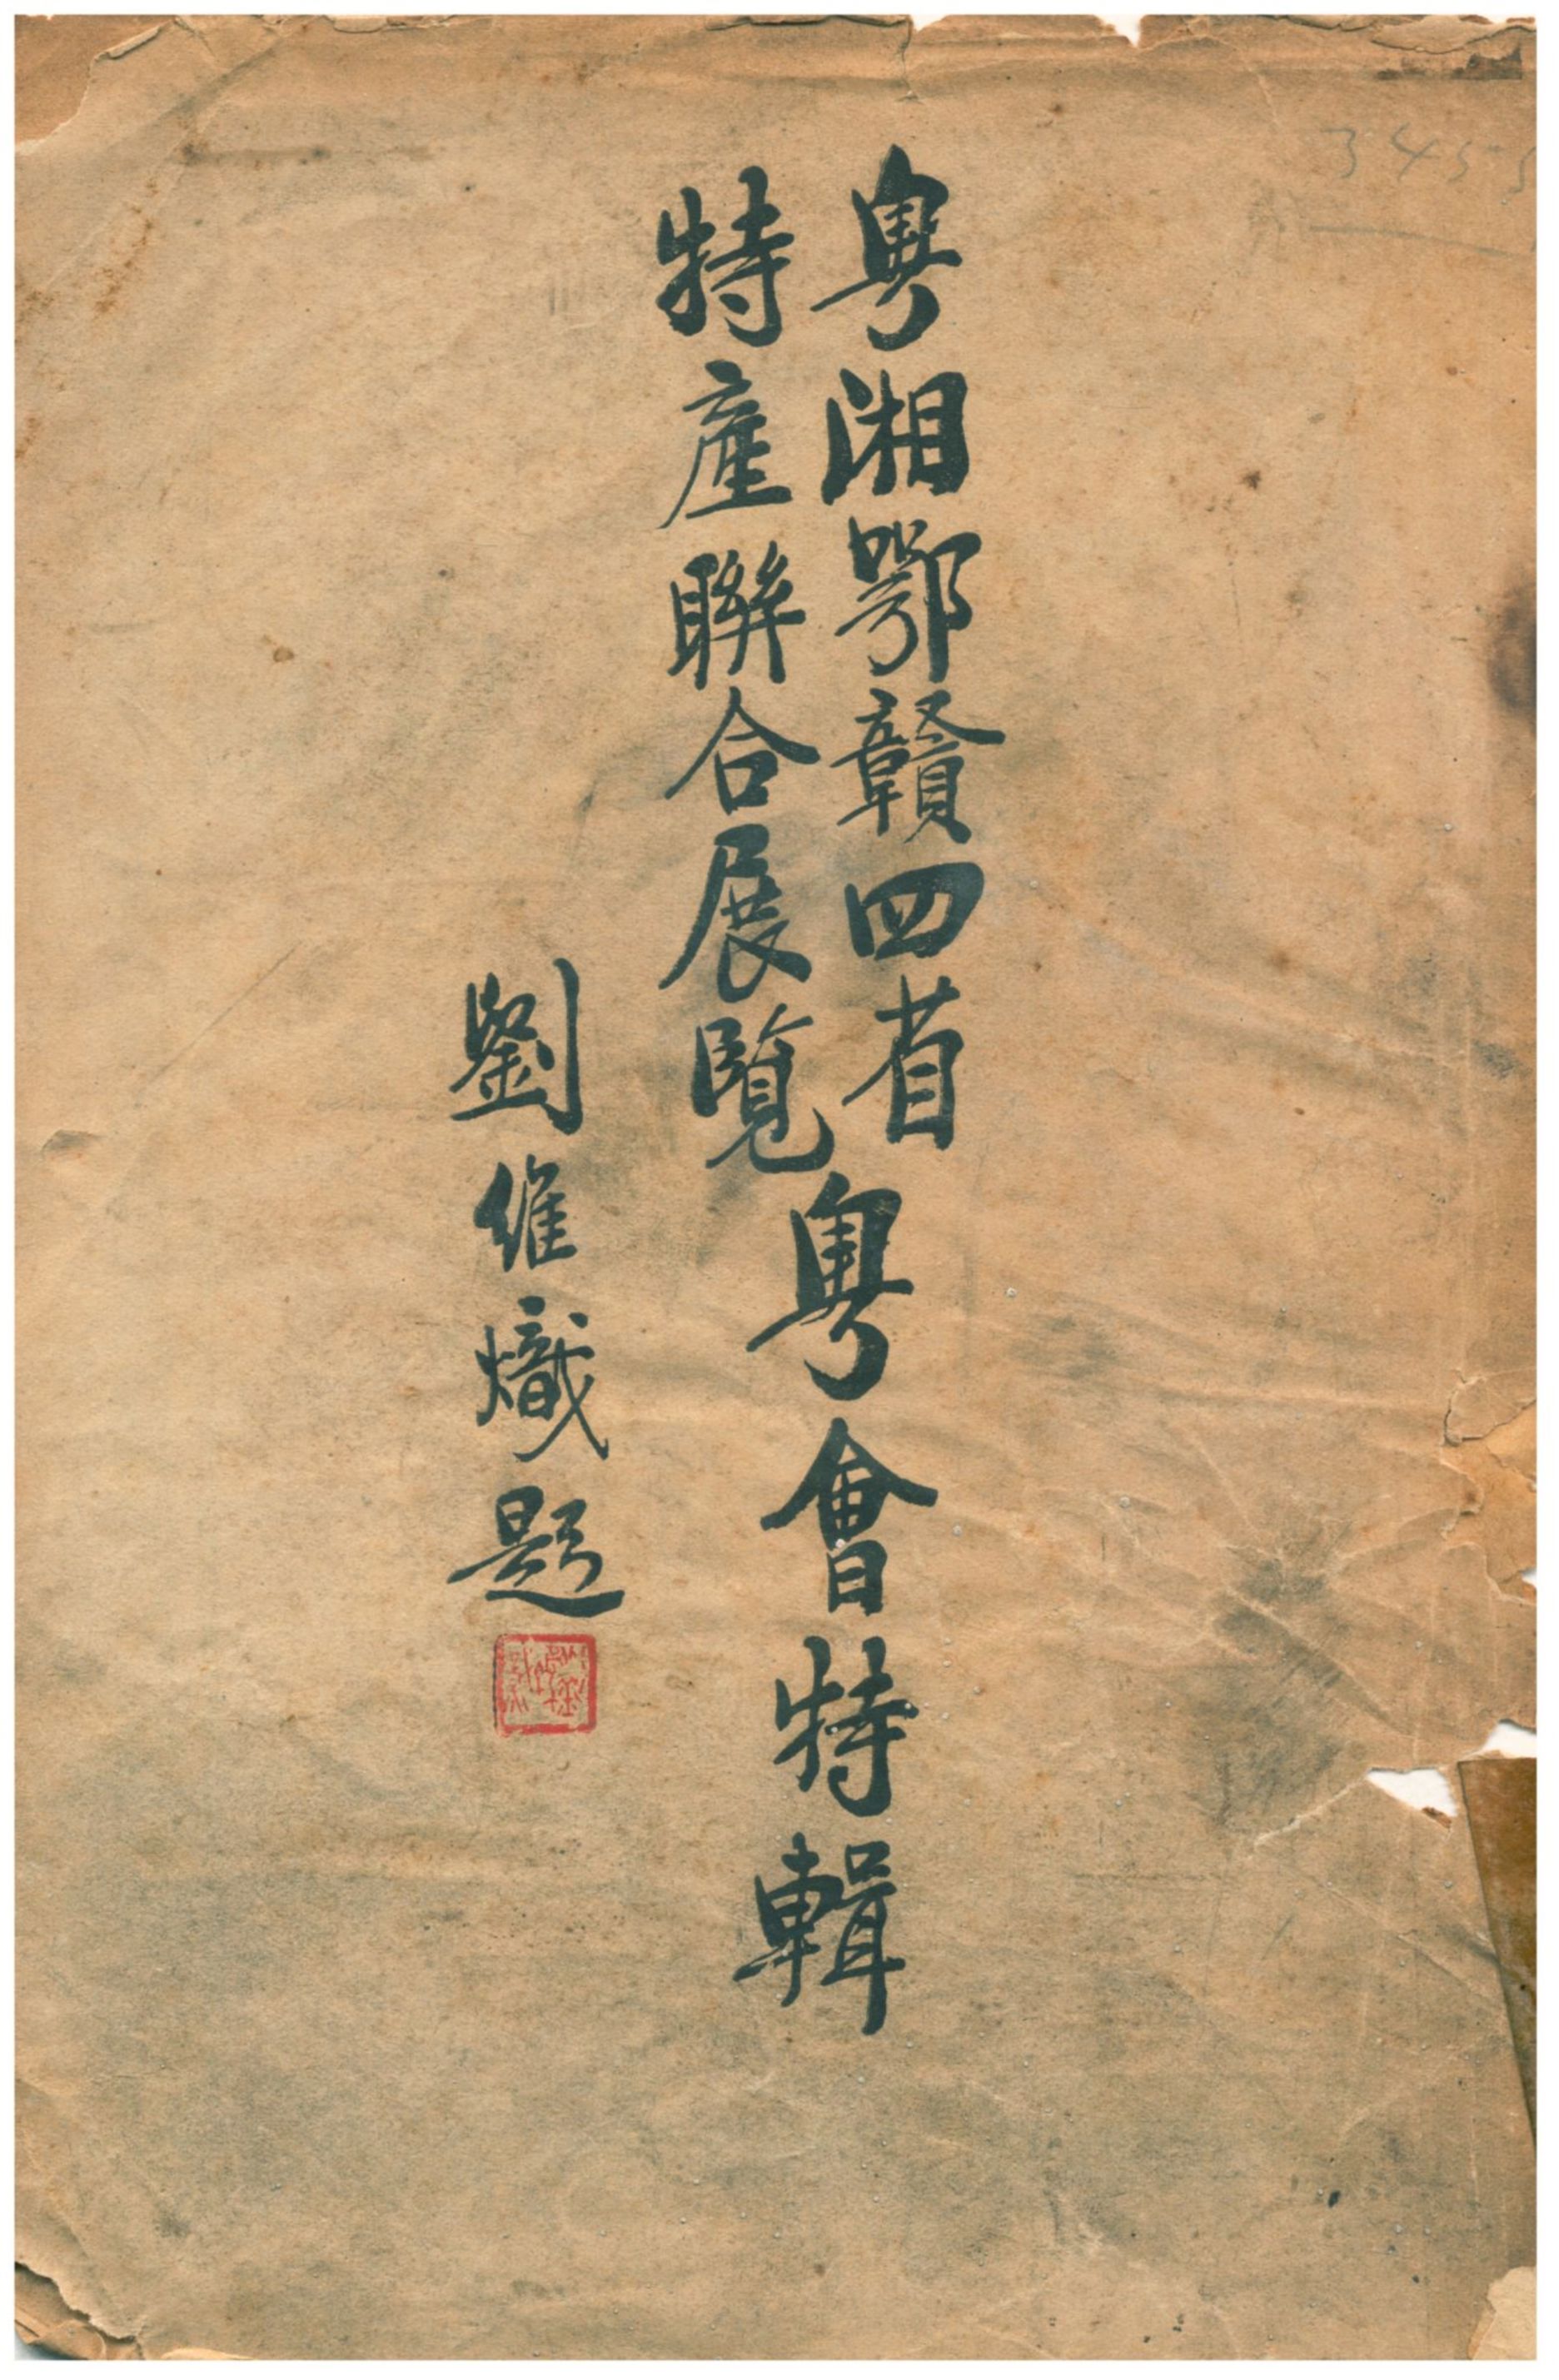 粤湘鄂贛四省
特產聯合展覽
粤會特輯
劉維熾題
345